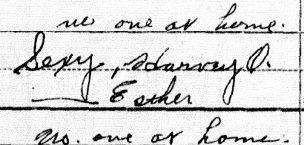 no one at home.
Sexy, Harvey O.
— Esther
No. one at home.